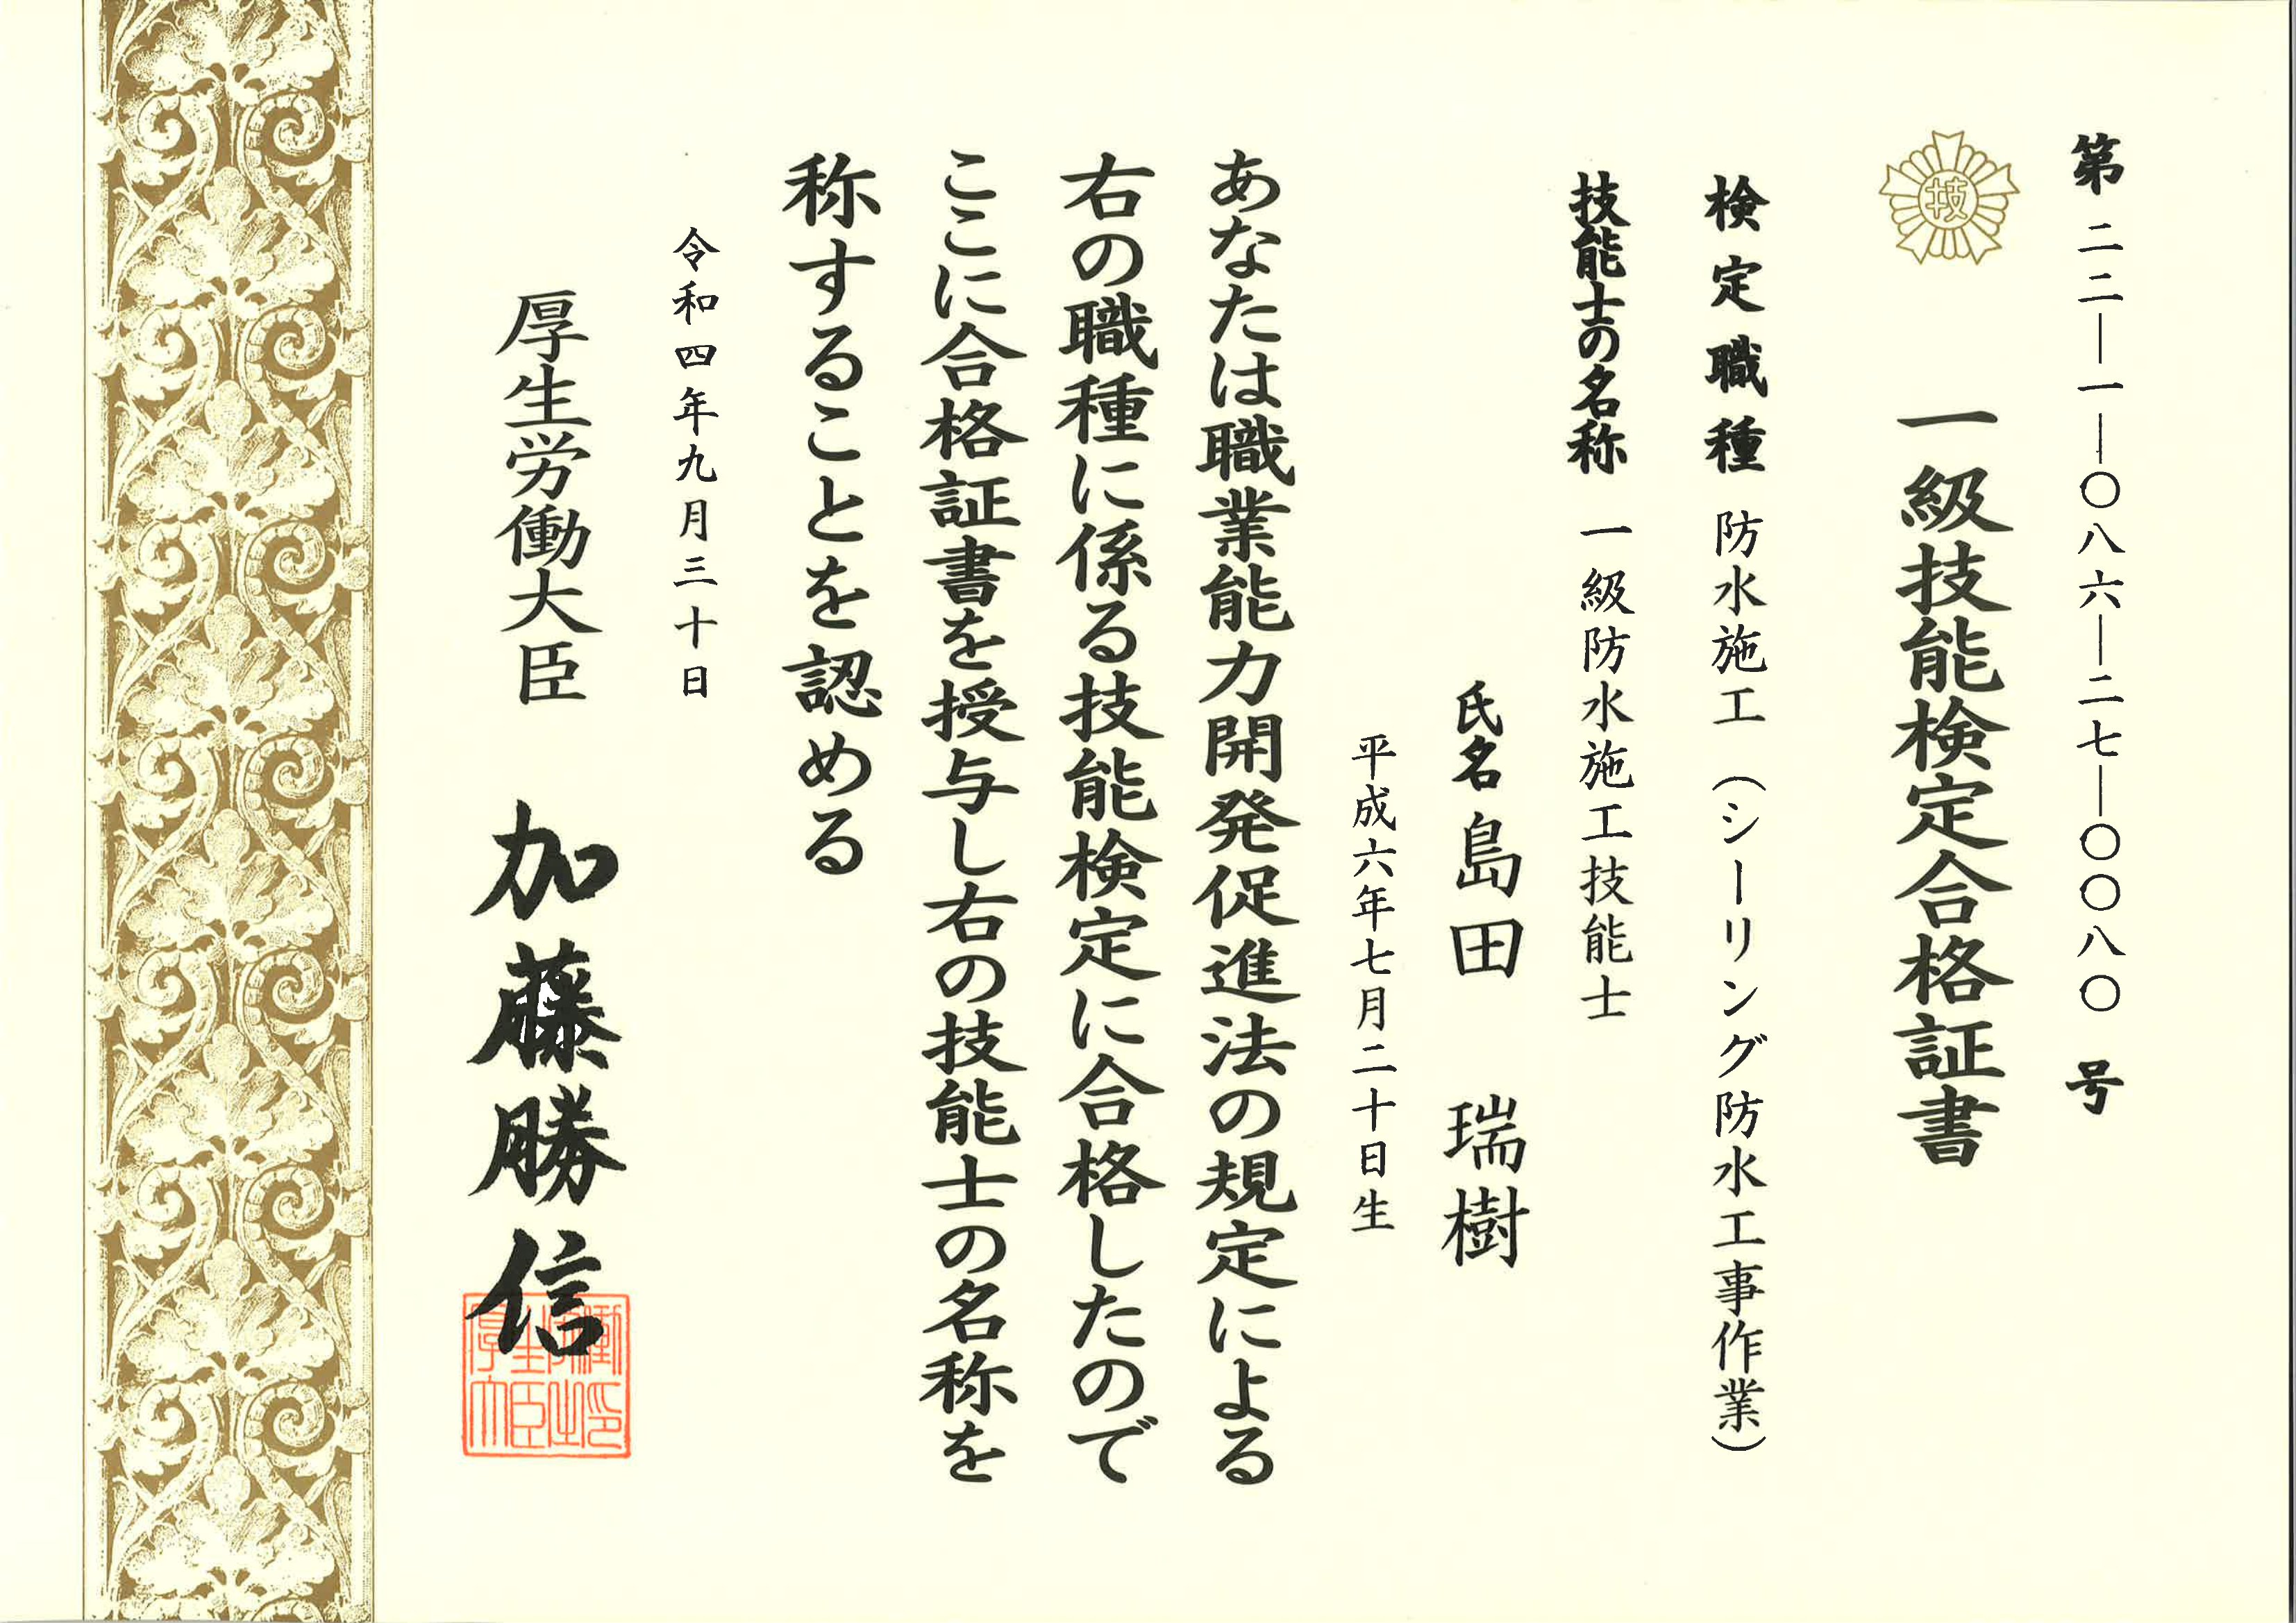 第二二―一―〇八六―二七―〇〇八〇号
技
一級技能検定合格証書
検定職種 防水施工（シーリング防水工事作業）
技能士の名称 一級防水施工技能士
氏名 島田 瑞樹
平成六年七月二十日生
あなたは職業能力開発促進法の規定による
右の職種に係る技能検定に合格したので
ここに合格証書を授与し右の技能士の名称を
称することを認める
令和四年九月三十日
厚生労働大臣 加藤勝信
厚生労働大臣之印